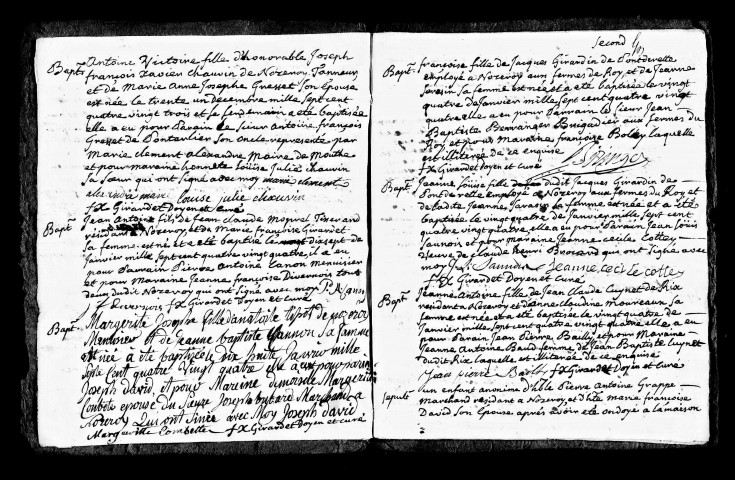 Bapt. Antoine Victoire fille d'honorable Joseph
françois Xavier chauvin de Nozeroy Tanneur
et de Marie Anne Josephe Gresset Son Epouse
est née le trente un decembre mille sept cent
quatre vingt trois et le lendemain a été baptisée
elle a eu pour Parain le Sieur Antoine françois
Gresset de Pontarlier Son oncle represente par
Marie clement alexandre Maire de Mouthe
et pour maraine honnete Louise Julie chauvin
Sa Sœur qui ont signé avec moy marie clement
alexandre maire Louise julie chauvin
fX Girardet Doyen et curé
Bapt. Jean Antoine fils de Jean Claude Tisserand
résidant a Nozeroy, et de Marie françoise Girardet
Sa femme est né et a été baptisé le dixsept de
Janvier mille sept cent quatre vingt quatre, il a eu
pour Parrain Pierre Antoine Canon menuisier
et pour Maraine Jeanne françoise Divernois tout
deux dudit Nozeroy qui ont signé avec moy P A Canon
f Divernois fX Girardet Doyen et curé
Bapt. Margerite Joseph fille d'anatoile de Nozeroy
et de jeanne baptiste Sa famme
est née a été baptisée le dix huite Janvie mille
sept cent quatre Vingt quatre elle a eut pour parin
Joseph david, et pour Mareine Margerite
Combete epouse du Sieure Joseph Marchand a
Nozeroy Qui ont Sinée avec Moy Joseph david
Margueritte Combette fX Girardet Doyen et curé
Second
Bapt. françoise fille de Jacques Girardin de Pontdevelle
employé a Nozeroy aux fermes du Roy et de Jeanne
sa femme est née et a été baptisée le vingt
quatre de janvier mille sept cent quatre vingt
quatre elle a eu pour Parrain le Sieur Jean
Baptiste Brigadier aux fermes du
Roy et pour Maraine françoise Bolley laquelle
est illiterée de ce enquise
fX Girardet Doyen et curé
Bapt. Jeanne Louise fille dudit Jacques Girardin de
Pontdevelle employé a Nozeroy aux fermes du Roy et
de ladite Jeanne sa femme est née et a été
baptisée le vingt quatre de Janvier mille sept cent
quatre vingt quatre, elle a eu pour Parain Jean Louis
Jaunois et pour maraine Jeanne cecile Cottez
veuve de Claude henri qui ont signé avec
moy Jeanne cecile cottez
fX Girardet Doyen et curé
Bapt. Jeanne Antoine fille de Jean Claude Cuynet de Rix
residant a Nozeroy et d'anne claudine Sa
femme est née et a été baptisée le vingt quatre de
Janvier mille sept cent quatre vingt quatre elle a eu
pour Parain Jean Pierre Bailly et pour Maraine
Jeanne Antoine Baud femme de Jean Baptiste Cuynet
dudit Rix laquelle est illiterée de ce enquise
Jean pierre Bailly fX Girardet Doyen et curé
Sepult. un enfant anonime d'h.ble Pierre Antoine Grappe
marchand résidant a Nozeroy, et d'h.te marie françoise
David Son Epouse après avoir été ondoyé a la maison